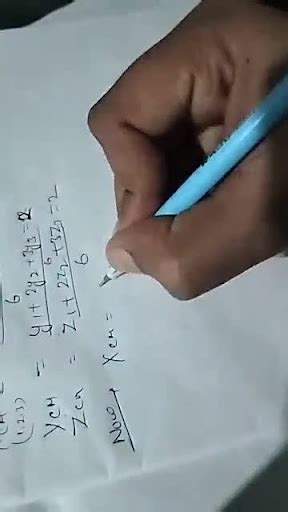 6
(1,2,3)
Y_CM = y1 + 2y2 + 3y3 / 6 = 2
Z_CM = z1 + 2z2 + 3z3 / 6 = 2
Now → X_CM =